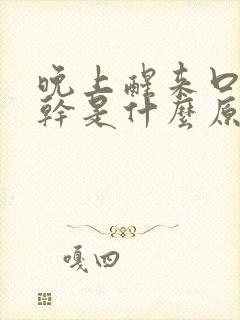 晚上醒来口
幹是什麼原
嘎四